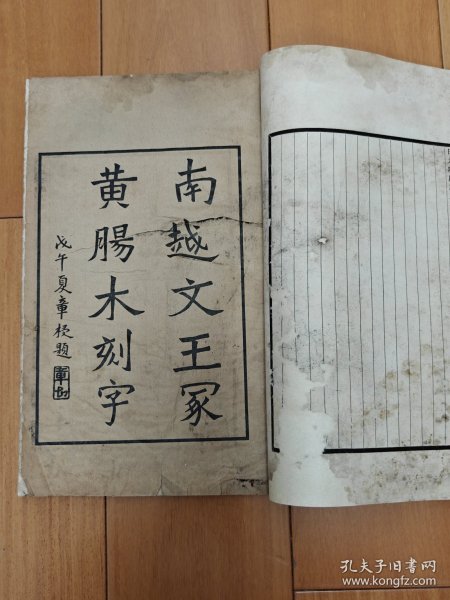 南越文王冢
黄腸木刻字
戊午夏章梫題
孔夫子旧书网
www.kongfz.com